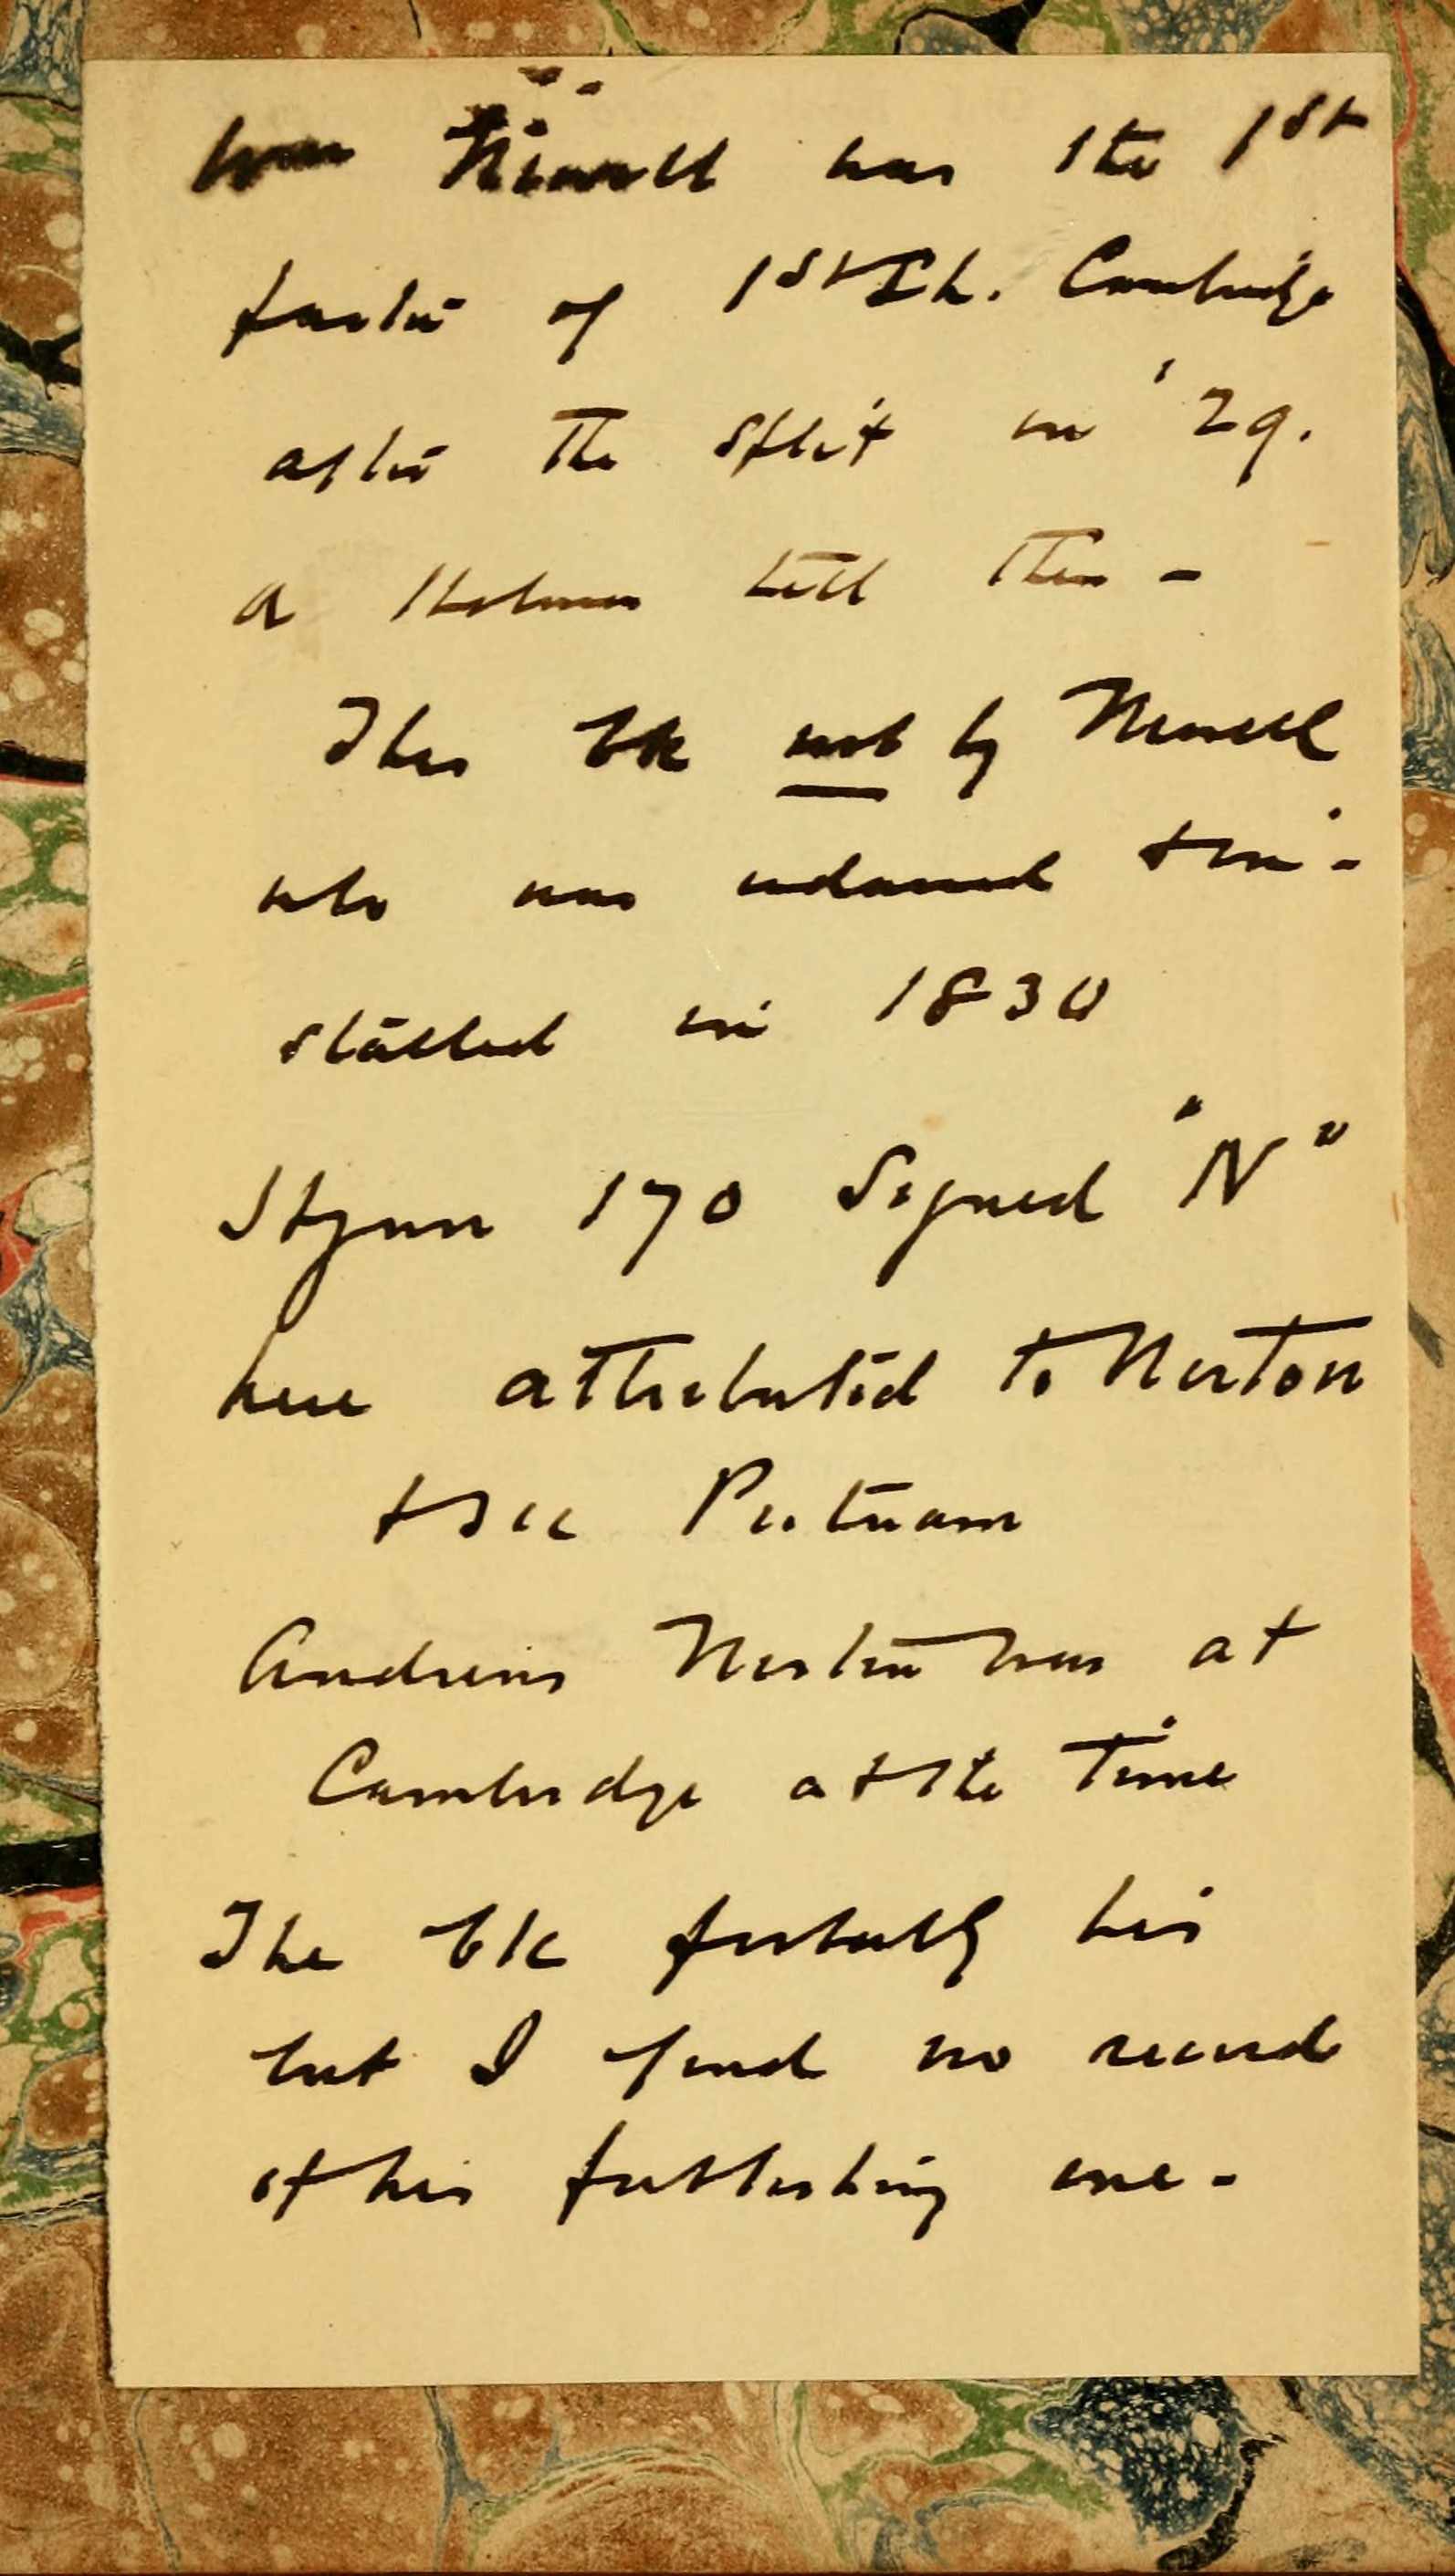 Wm Newell was the 1st
pastor of 1st Ch. Cambridge
after the split in '29.
A Holmes till then -
This bk not by Newell
who was ordained + in-
stalled in 1830
Hymn 170 Signed "N"
here attributed to Norton
+ see Putnam
Andrews Norton was at
Cambridge at the time
The bk probably his
but I find no record
of his publishing one -